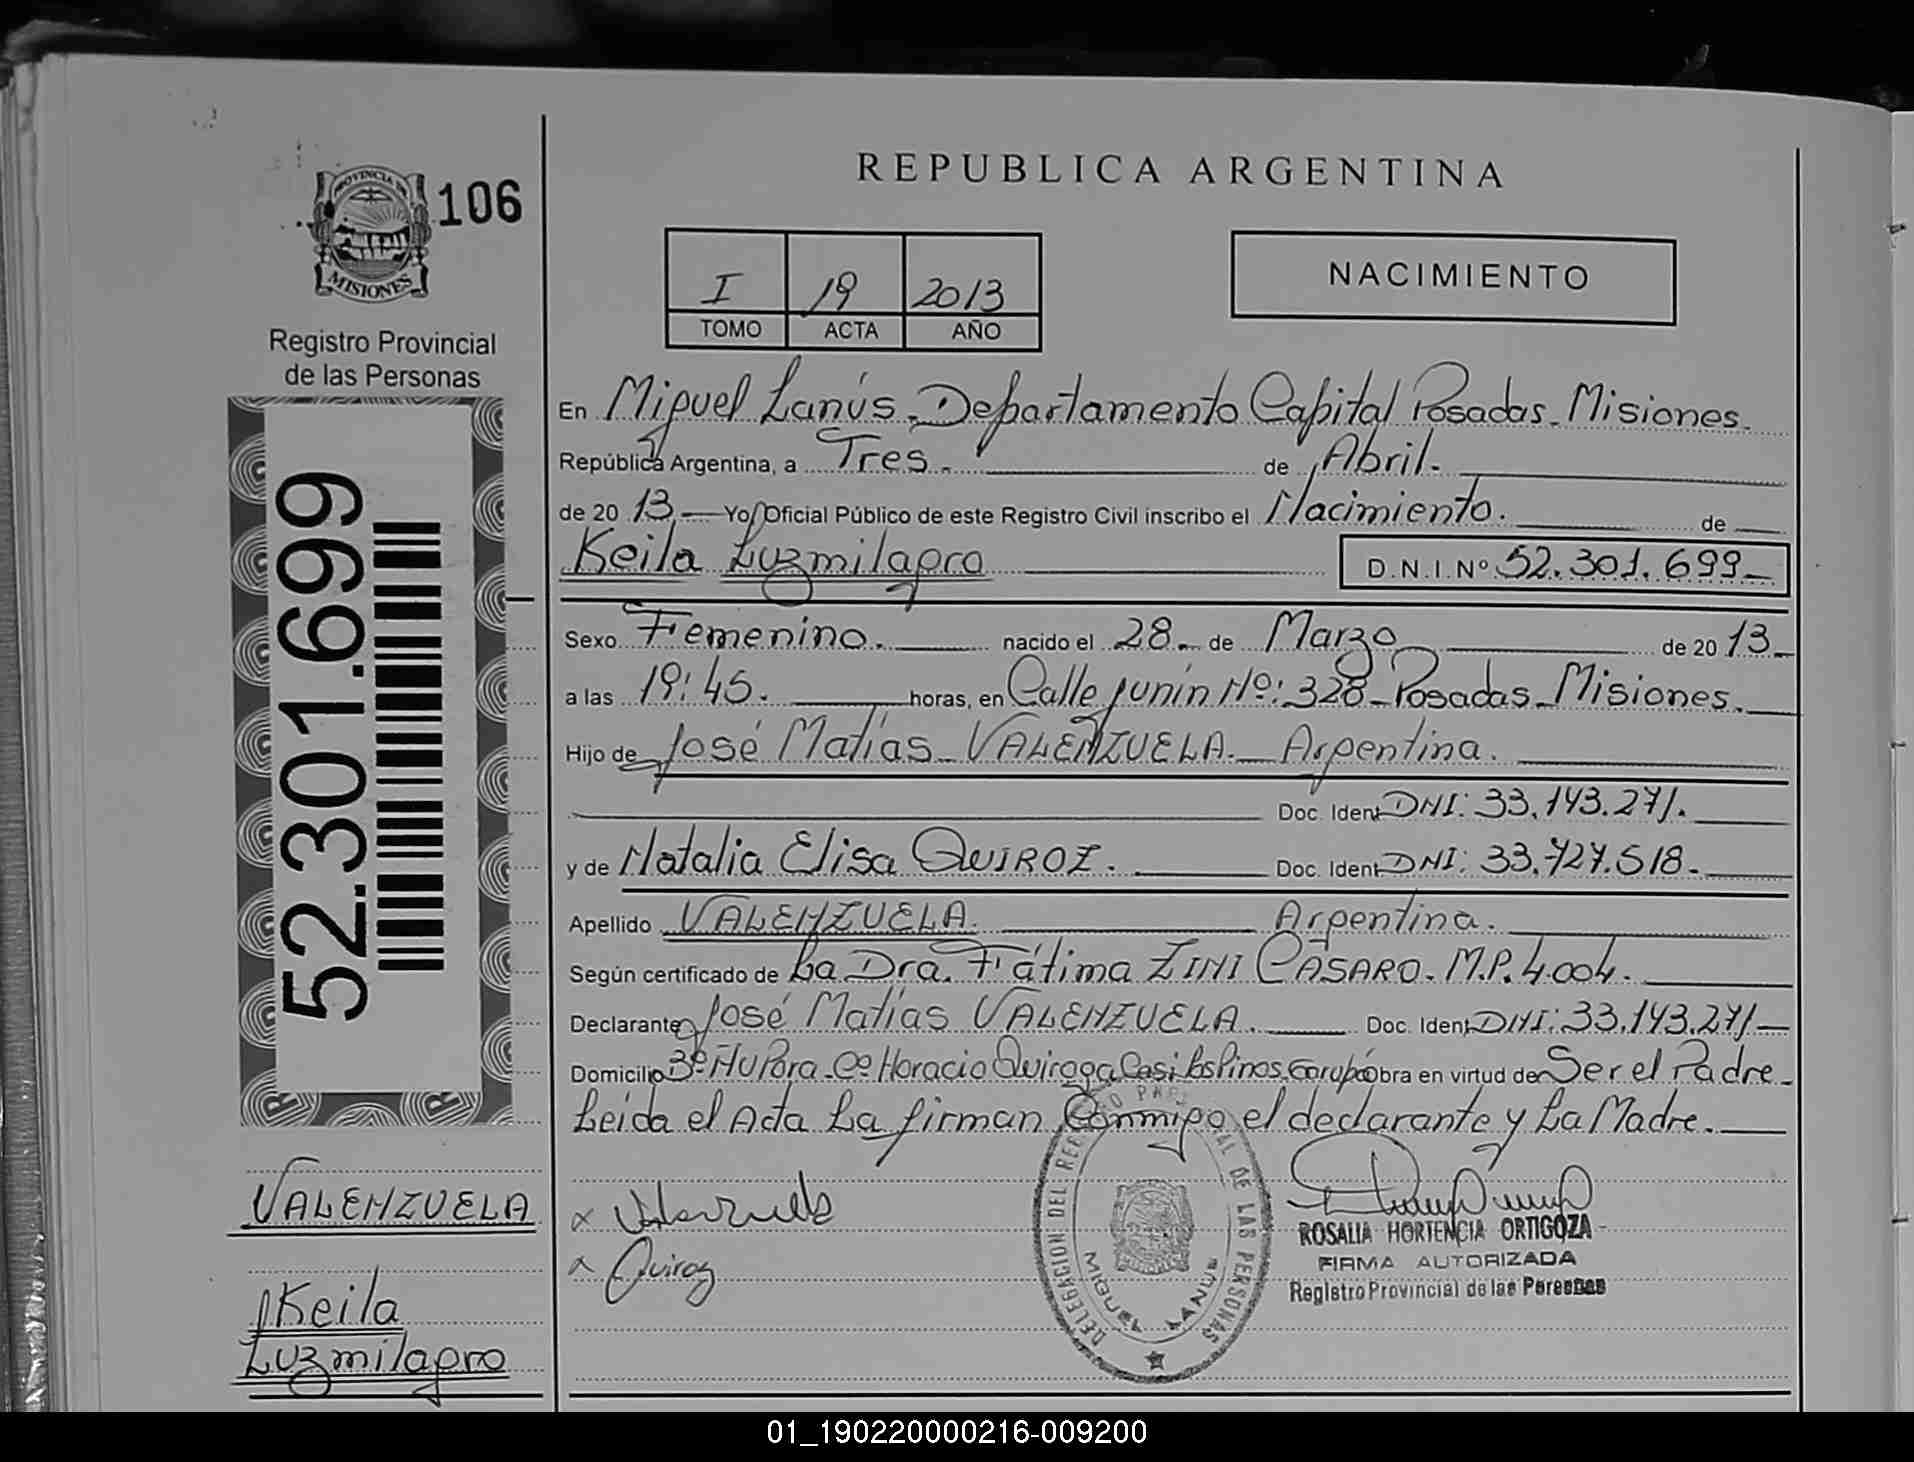 REPUBLICA ARGENTINA
PROVINCIA DE
MISIONES
106
Registro Provincial
de las Personas
I 19 2013
TOMO ACTA AÑO
NACIMIENTO
En Miguel Lanús. Departamento Capital Posadas. Misiones.
República Argentina, a Tres. de Abril.
de 20 13 Yo, Oficial Público de este Registro Civil inscribo el Nacimiento. de
Keila Luzmilagro D.N.I.Nº 52.301.699
Sexo Femenino. nacido el 28 de Marzo de 20 13
a las 19:45. horas, en Calle Junín Nº: 328 - Posadas - Misiones.
Hijo de José Matías VALENZUELA. Argentina.
Doc. Ident DNI: 33.143.271.
y de Natalia Elisa QUIROZ. Doc. Ident DNI: 33.727.518.
Apellido VALENZUELA. Argentina.
Según certificado de La Dra. Fátima ZINI CASARO. M.P. 4.004.
Declarante José Matías VALENZUELA. Doc. Ident DNI: 33.143.271
Domicilio Bº Ñu Pora - Cº Horacio Quiroga Casi Los Pinos. Garupá Obra en virtud de Ser el Padre.
Leída el Acta La firman Conmigo el declarante y La Madre.
52.301.699
VALENZUELA
Keila
Luzmilagro
x Valenzuela
x Quiroz
DELEGACION DEL REGISTRO PROVINCIAL DE LAS PERSONAS
MIGUEL LANUS
ROSALIA HORTENCIA ORTIGOZA
FIRMA AUTORIZADA
Registro Provincial de las Personas
01_190220000216-009200